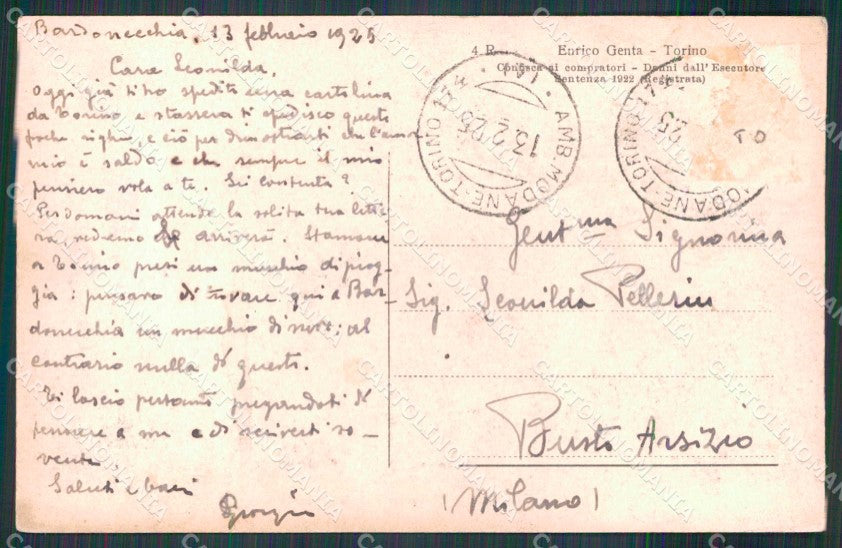 Bardonecchia, 13 febbraio 1925
Cara Leonilda,
Oggi già ti ho spedito una cartolina
da Torino, e stassera ti spedisco queste
poche righe, e ciò per dimostrarti che l'amor
mio è saldo e che sempre il mio
pensiero vola a te. Sei contenta?
Per domani attendo la solita tua lette-
ra, vedremo se arriverà. Stamane
a Torino presi un mucchio di piog-
gia: pensavo di trovare qui a Bar-
donecchia un mucchio di neve: al
contrario nulla di questo.
Ti lascio pertanto pregandoti di
pensare a me e di scriverti so-
vente
Saluti e baci
Giorgio
4 R. Enrico Genta - Torino
Confisca ai compratori - Danni dall'Esecutore
Sentenza 1922 (Registrata)
AMB. MODANE-TORINO 174
13.2.25
MODANE-TORINO 174
25
TO
Gent.ma Signorina
Sig. Leonilda Pellerin
Busto Arsizio
(Milano)
CARTOLINOMANIA